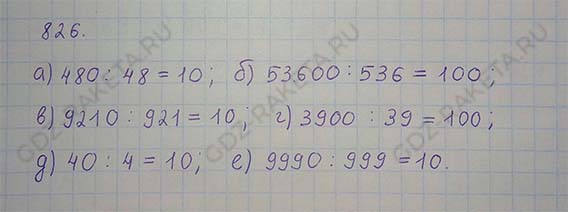 826.
а) 480 : 48 = 10; б) 53600 : 536 = 100;
в) 9210 : 921 = 10; г) 3900 : 39 = 100;
д) 40 : 4 = 10; е) 9990 : 999 = 10.
GDZ-RAKETA.RU
GDZ-RAKETA.RU
GDZ-RAKETA.RU